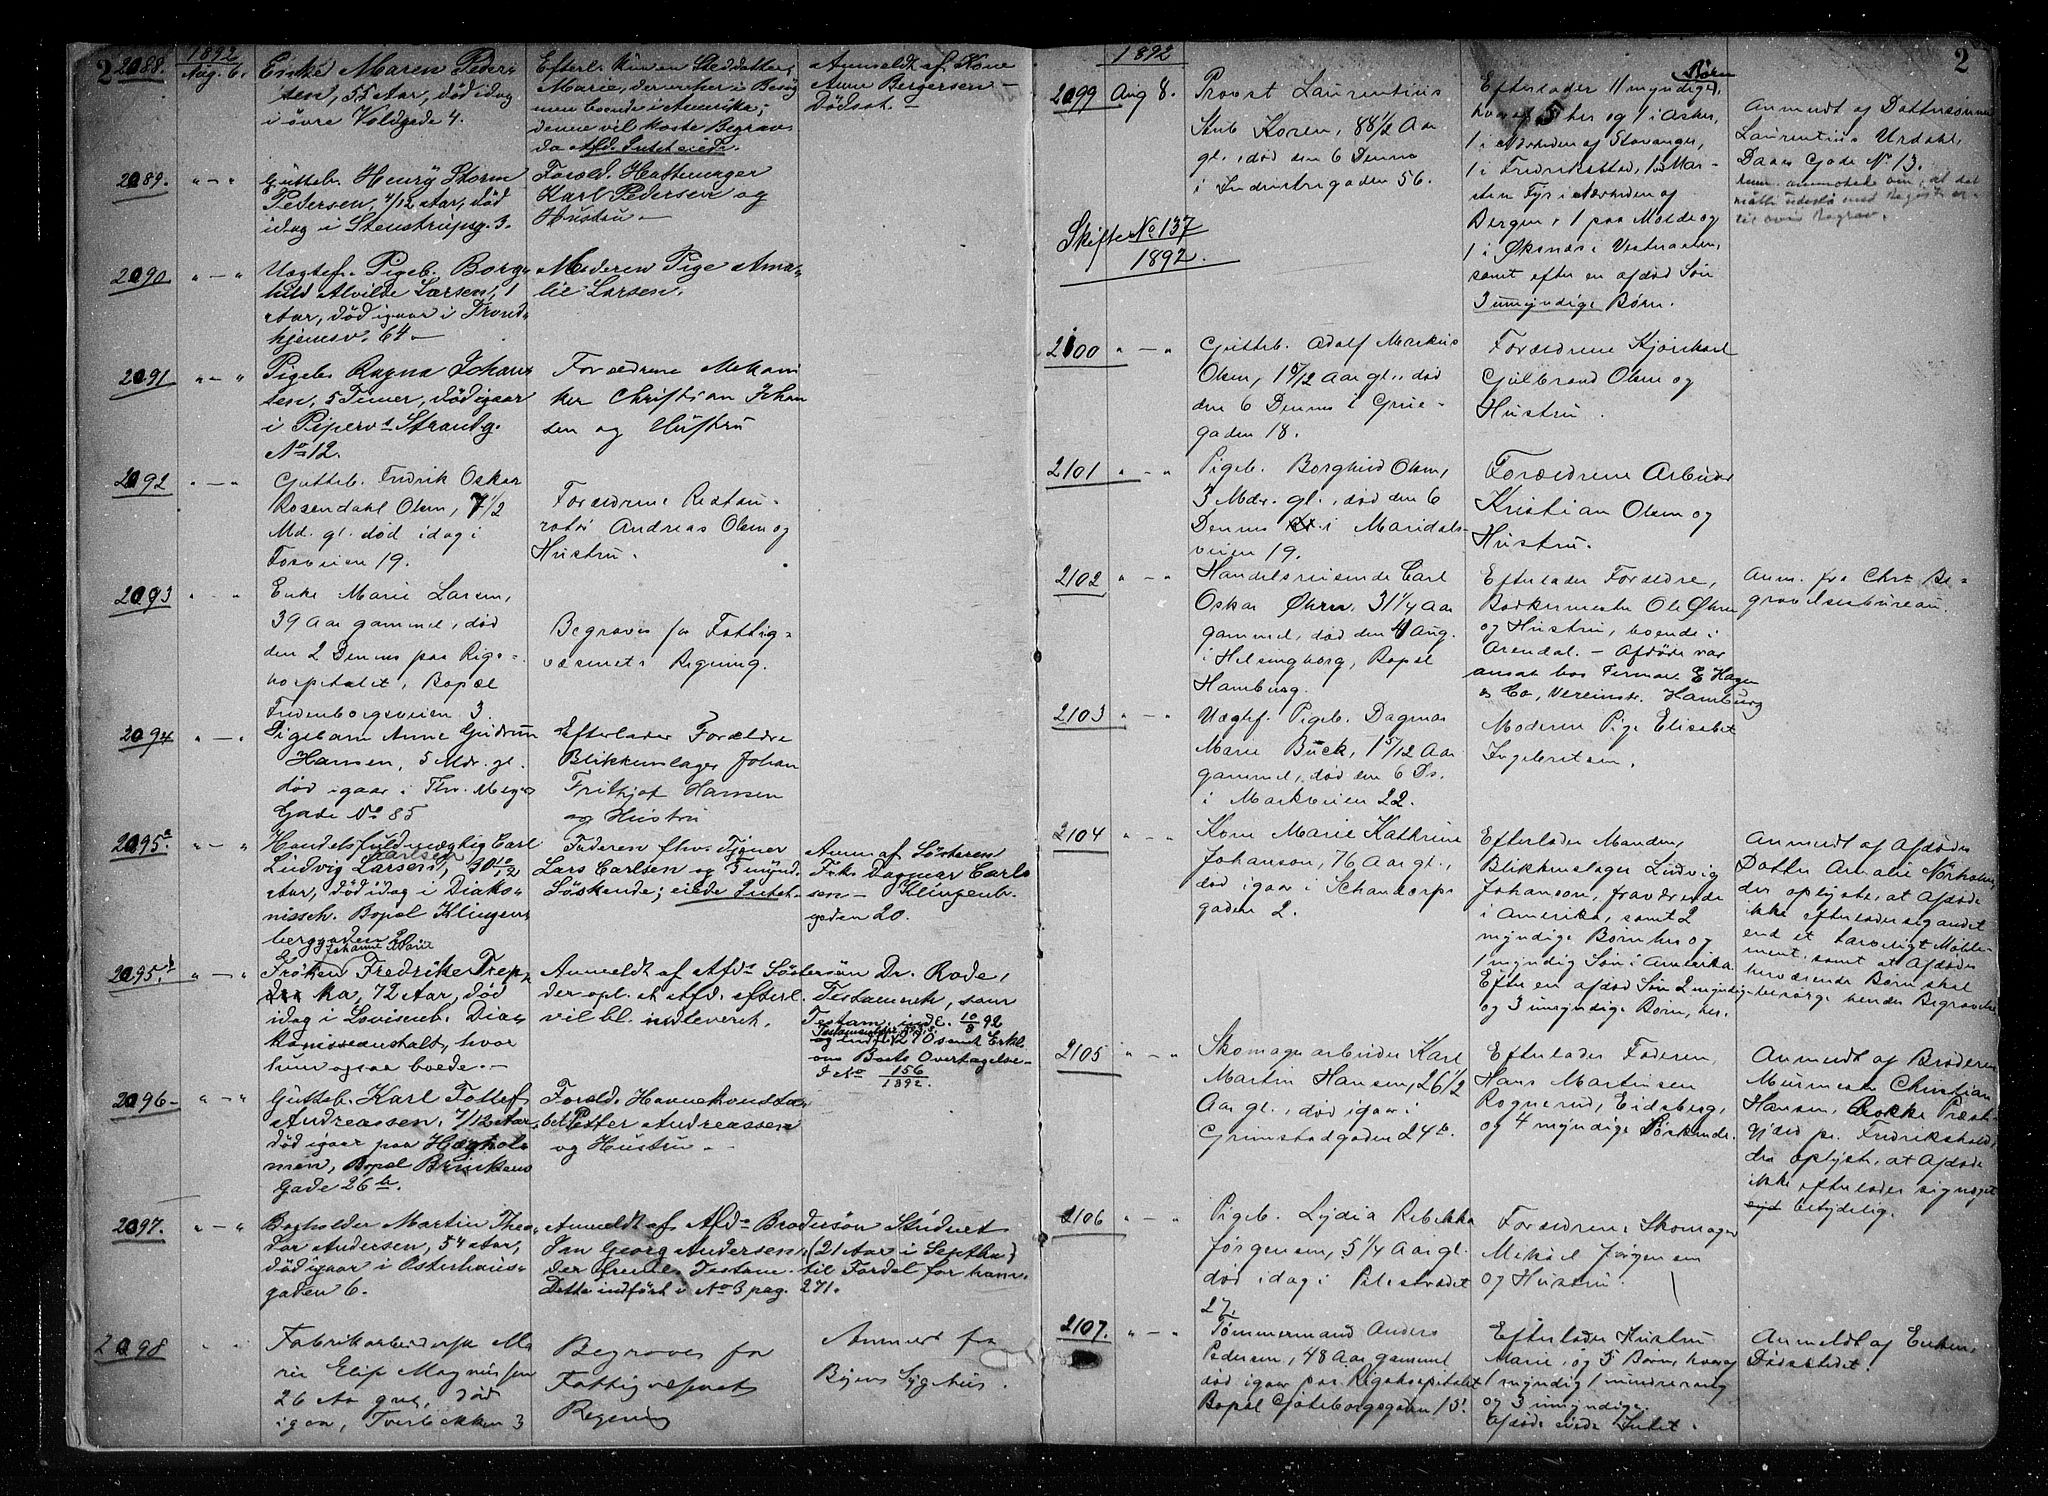 2
1892
2088. Aug. 6. Enke Maren Peder-
sen, 55 Aar, død idag
i øvre Voldgade 4.
Efterl. kun en Steddatter,
Marie, der
men boende i Amerika;
denne vil koste Begrav.
da Afd. Intet eiede.
Anmeldt af Kone
Anne Bergersen –
Dødsst.
2089. " – " Gutteb. Henry Storm
Pedersen, 4/12 Aar, død
idag i Stenstrupsg. 3.
Foræld.
Karl Pedersen og
Hustru –
2090 " – " Uægtef. Pigeb. Borg-
hild Alvilde Larsen, 1
Aar, død igaar i Trond-
hjemsv. 64 –
Moderen Pige Ama-
lie Larsen.
2091 " – " Pigeb. Ragna Johan-
sen, 5 Timer, død igaar
i Piperv. Strandg.
No 12.
Forældrene Mekani
ker Christian Johan
sen og Hustru
2092 " – " Gutteb. Fredrik Oskar
Rosendahl Olsen, 7 1/2
Md. gl. død idag i
Fosveien 19.
Forældrene Restau-
ratør Andreas Olsen og
Hustru.
2093 " – " Enke Marie Larsen,
39 Aar gammel, død
den 2 Dennes paa Rigs-
hospitalet, Bopæl
Fredenborgsveien 3.
Begraves for Fattig-
væsenets Regning.
2094 " – " Pigebarn Anne Gudrun
Hansen, 5 Mdr. gl.
død igaar i Thv. Meyers
Gade No 85
Efterlader Forældre
Blikkenslager Johan
Frithjof Hansen
og Hustru
2095.a " – " Handelsfuldmægtig Carl
Ludvig Larsen, 30 10/12
Carlsen
Aar, død idag i Diako-
nisseh. Bopæl Klingen-
berggaden 20
Faderen fhv. Tjener
Lars Carlsen og 5 mynd.
Søskende; eiede Intet –
Anm. af Søsteren
Frk. Dagmar Carl-
sen – Klingenb-
gaden 20.
2095.b " – " Frøken Fredrikke Trep-
Johanne Marie
ka, 72 Aar, død
idag i Lovisenb. Dia-
konisseanstalt, hvor
hun ogsaa boede. –
Anmeldt af Afd's Søstersøn Dr. Rode,
der opl. at Afd. efterl. Testamente, som
vil bl. indleveret.
Testam. indl. 10/8 92
og indf. 270 samt Erkl.
om Boets Overtagelse –
J No 156
1892.
2096 – " – " Gutteb. Karl Tollef
Andreassen, 7/12 Aar,
død igaar paa Hægholm-
men, Bopæl Brinkens
Gade 26 b.
Foræld. Havnekonsta-
bel Petter Andreassen
og Hustru –
2097. " – " Bogholder Martin Theo-
dor Andersen, 54 Aar,
død igaar i Osterhaus-
gaden 6.
Anmeldt af Afd's Brodersøn Student
Jan Georg Andersen (21 Aar i Septbr)
der freml. Testam. til Fordel for ham.
Dette indført i No 3 pag. 271.
2098 " " Fabrikarbeiderske Ma
rie Elise Magnussen
26 Aar gml, død
igaar, Tverbækken 3
Begraves for
Fattigvæsenets
Regning
Anmeldt fra
Byens Sygehus.
2
1892
2099 Aug 8. Provst Laurentius
Stub Koren, 88 1/2 Aar
gl., død den 6 Dennes
i Industrigaden 56.
Skifte No 137
1892.
Efterlader 11 myndige Børn,
hvoraf 5 her og 1 i Asker,
1 i Nærheden af Stavanger,
1 i Fredrikstad, 1 ved Mar-
sten Fyr i Nærheden af
Bergen, 1 paa Molde og
1 i Øksnæs i Vesteraalen,
samt efter en afdød Søn
3 umyndige Børn.
Anmeldt af Dattersønnen
Laurentius Urdahl,
Daas Gade No 13.
2100 " – " Gutteb. Adolf Markus
Olsen, 1 5/12 Aar gl., død
den 6 Dennes i Grue-
gaden 18.
Forældrene Kjørekarl
Gulbrand Olsen og
Hustru.
2101 " – " Pigeb. Borghild Olsen,
3 Mdr. gl., død den 6
Dennes i Maridals-
veien 19.
Forældrene Arbeider
Kristian Olsen og
Hustru.
2102 " – " Handelsreisende Carl
Oskar Øhrn, 31 1/4 Aar
gammel, død den 4 Aug.
i Helsingborg, Bopæl
Hamburg.
Efterlader Forældre,
Bødkermester Ole Øhrn
og Hustru, boende i
Arendal. – Afdøde var
ansat hos Firmaet E Hagen
& Co, Vereinstr. Hamburg
Anm. fra Chr. Be-
gravelsesbureau.
2103 " – " Uægtef. Pigeb. Dagmar
Marie Buck, 1 5/12 Aar
gammel, død den 6 Ds.
i Markveien 22.
Moderen Pige Elisabet
Ingebretsen.
2104 " – " Kone Marie Kathrine
Johanson, 76 Aar gl.,
død igaar i Schandorps
gaden 2.
Efterlader Manden,
Blikkenslager Ludvig
Johanson, fraværende
i Amerika, samt 2
myndige Børn her og
1 myndig Søn i Amerika.
Efter en afdød Søn 2 myndige
og 3 umyndige Børn, her.
Anmeldt af Afdødes
Datter Amalie Nørholm,
der oplyste, at Afdøde
ikke efterlader sig andet
end et tarveligt Møble-
ment, samt at Afdødes
herværende Børn skal
besørge hendes Begravelse
2105 " – " Skomagerarbeider Karl
Martin Hansen, 26 1/2
Aar gl., død igaar i
Grimstadgaden 24 b.
Efterlader Faderen,
Hans Martinsen
Rognerud, Eidsberg,
og 4 myndige Søskende.
Anmeldt af Broderen
Murmester Christian
Hansen, Rokke Præste-
gjeld pr. Fredrikshald,
der oplyste, at Afdøde
ikke efterlader sig noget
betydelig.
2106 " – " Pigeb. Lydia Rebekka
Jørgensen, 5 1/4 Aar gl.
død idag i Pilestrædet
27.
Forældrene Skomager
Mikael Jørgensen
og Hustru.
2107. " – " Tømmermand Anders
Pedersen, 48 Aar gammel
død igaar paa Rigshospitalet
Bopæl Gøteborgsgaden 15.
Efterlader Hustru
Marie, og 5 Børn, hvoraf
1 myndig 1 mindreaarig
og 3 umyndige.
Afdøde eiede Intet.
Anmeldt af Enken,
Dødsstedet.